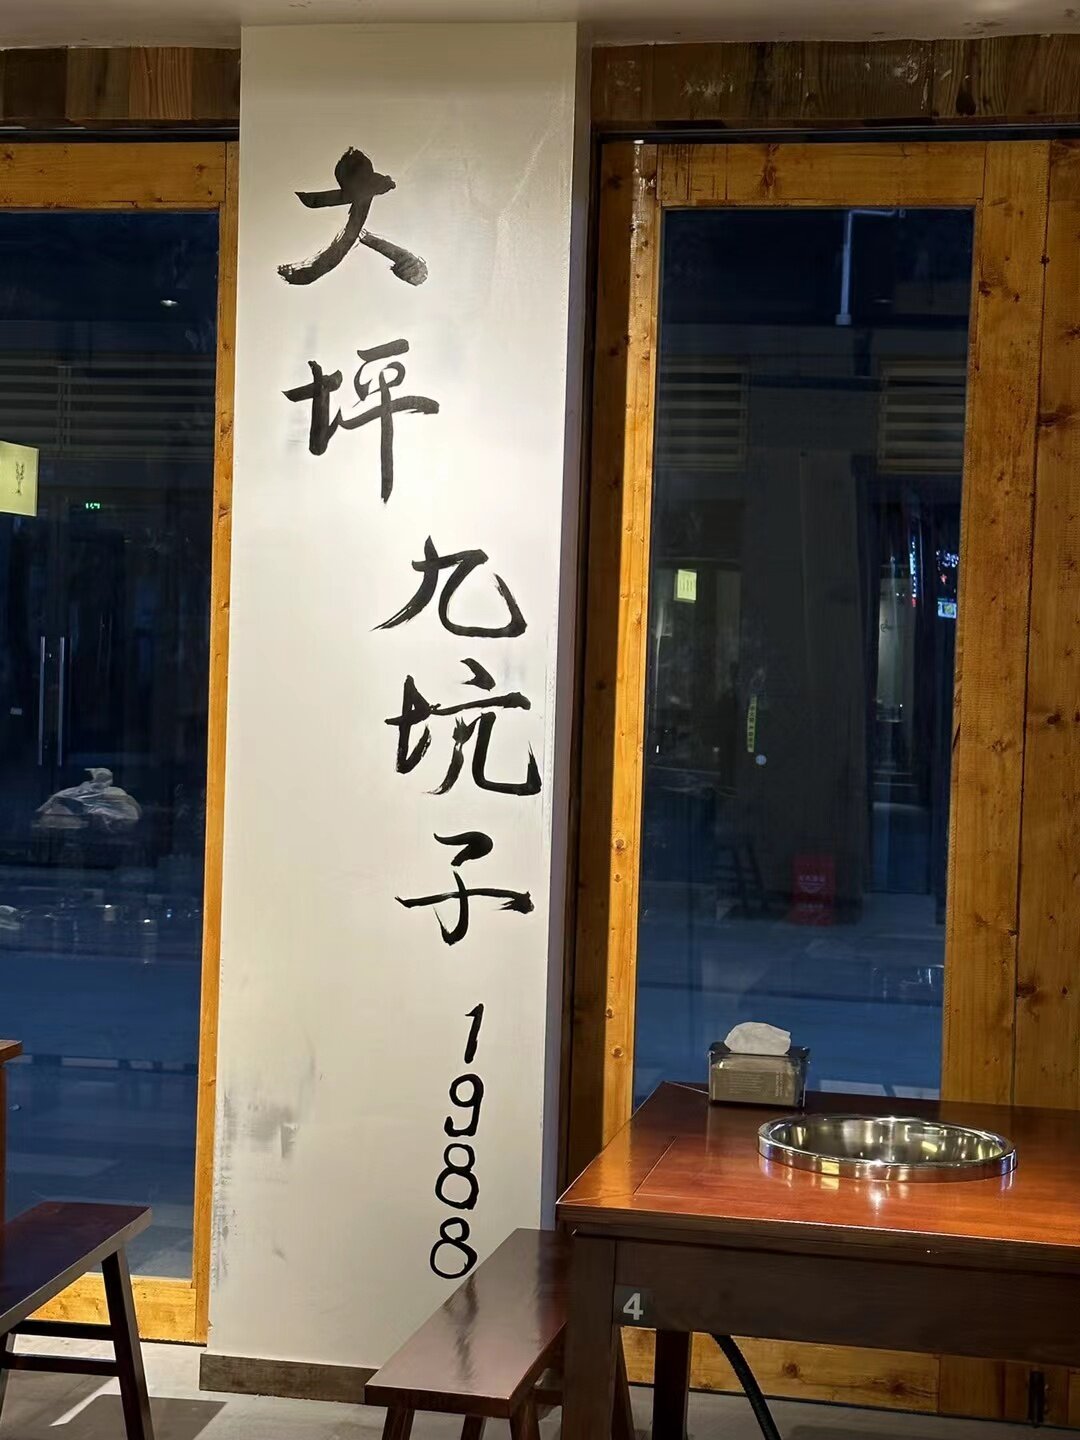 大坪
九坑子
1988
4